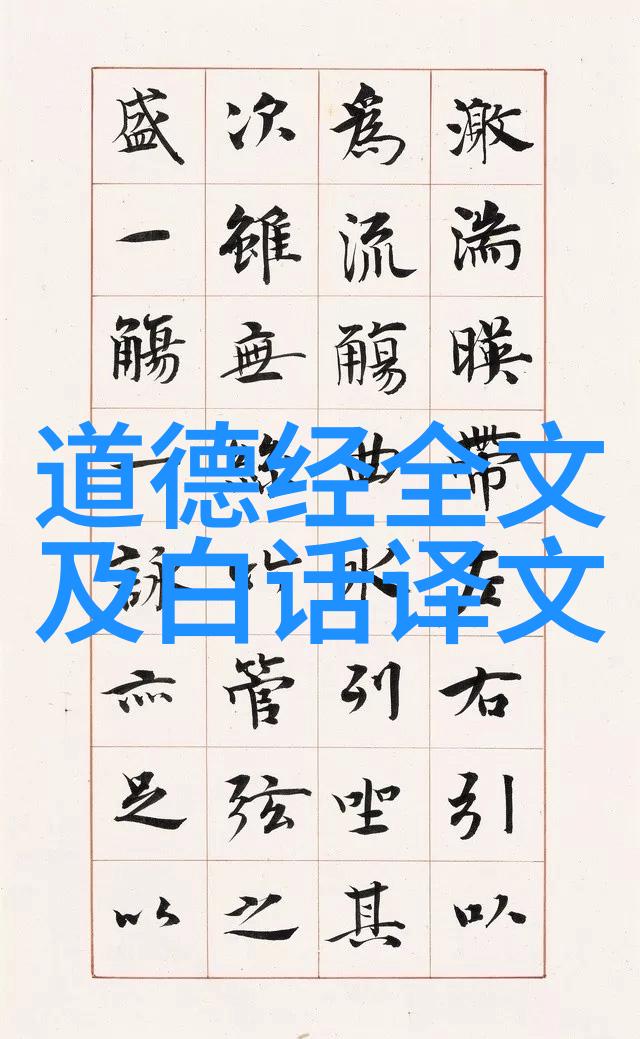 道德经全文
及白话译文
激湍暎帶左右引以
為流觴曲水列坐其
次雖無絲竹管弦之
盛一觴一詠亦足以